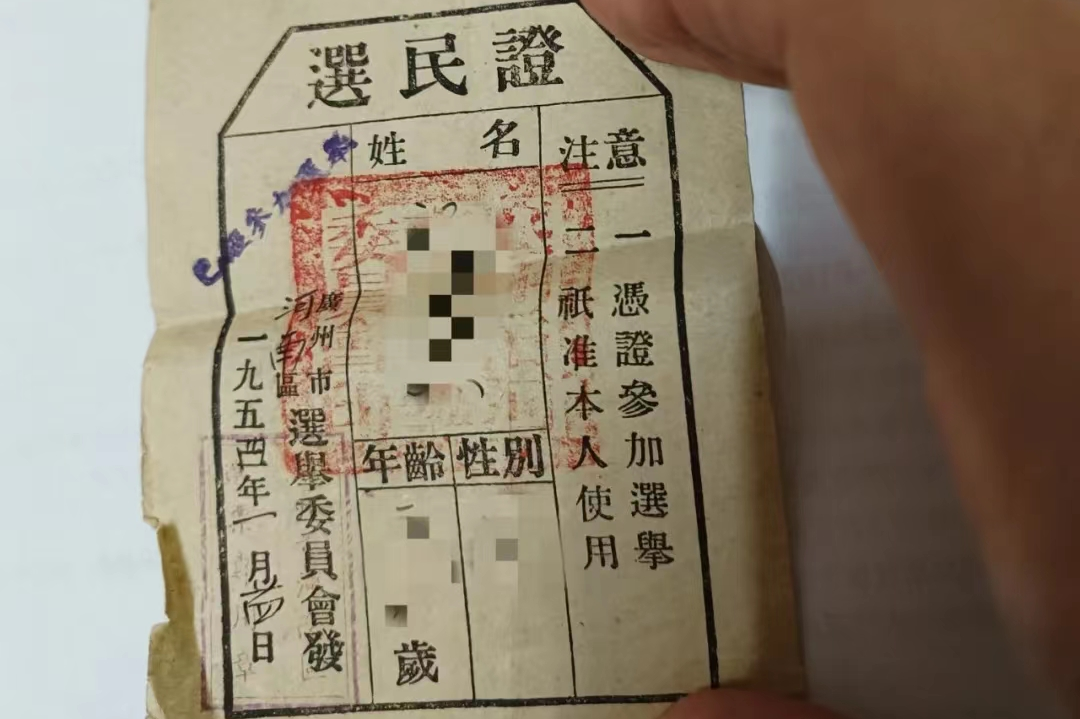 選民證
注意
一 憑證參加選舉
二 祇准本人使用
姓名
性別
年齡
歲
廣州市
河南區
選舉委員會發
一九五四年一月廿四日
參加
委員